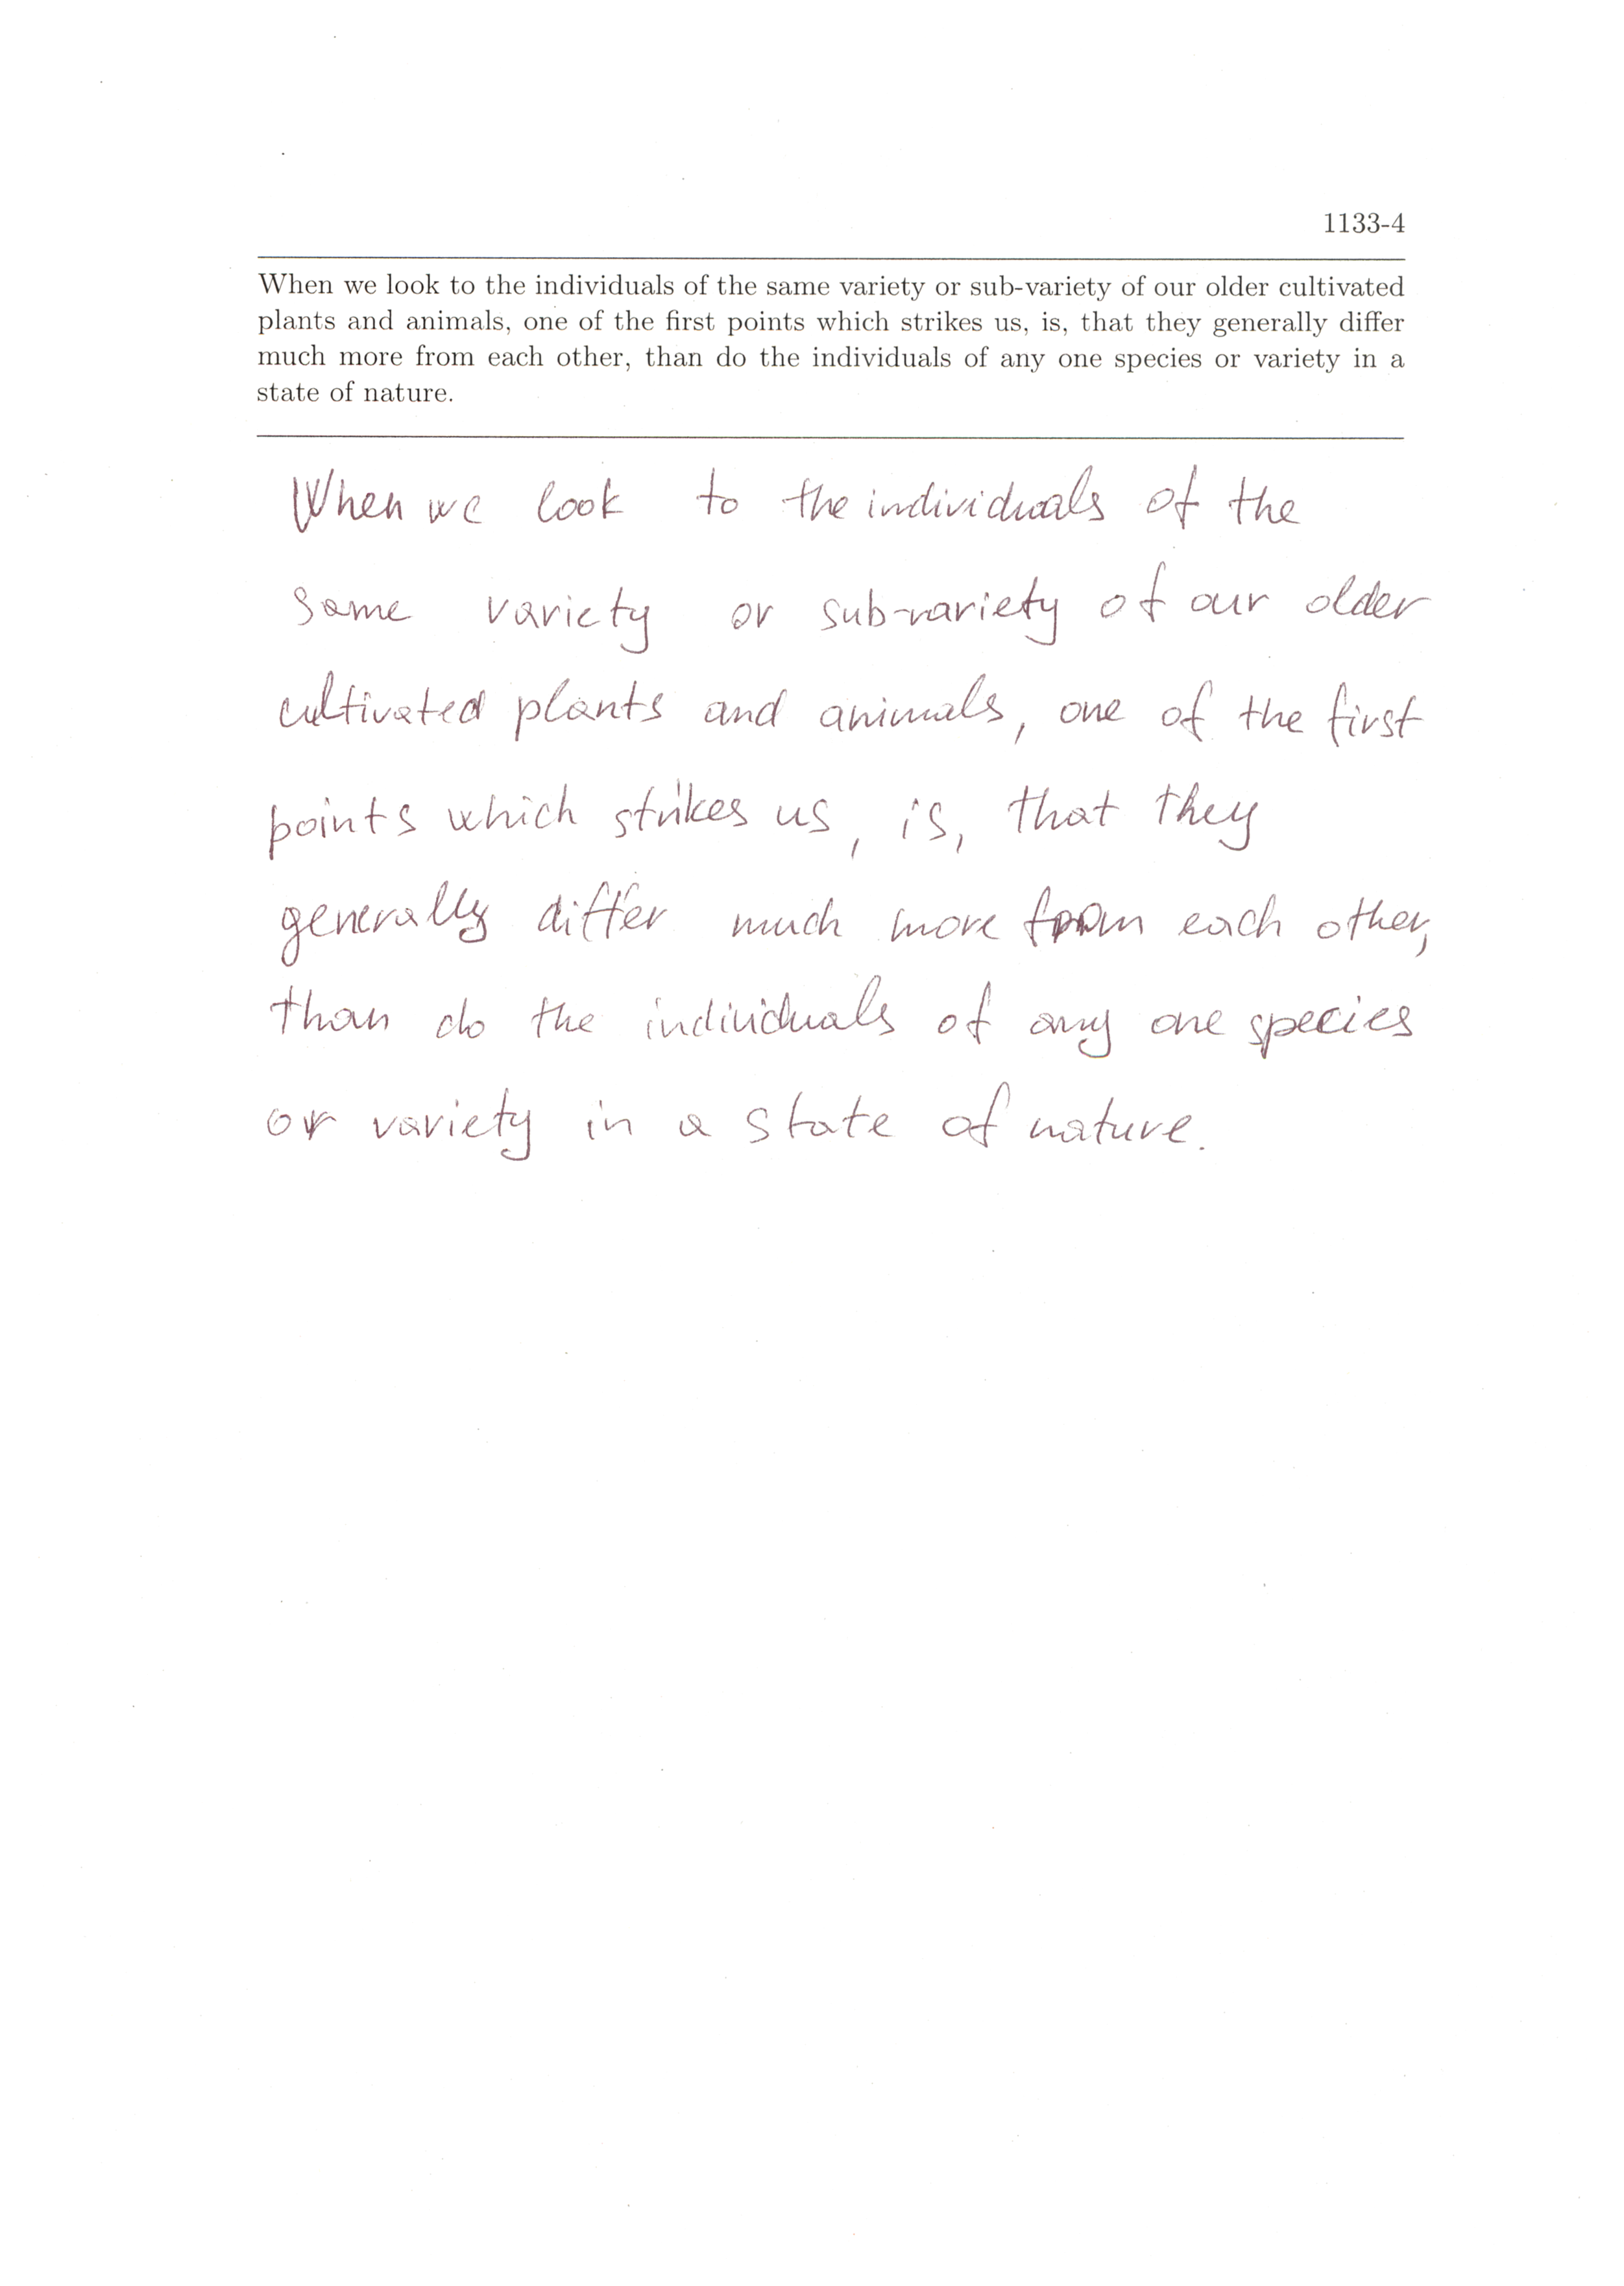 1133-4
When we look to the individuals of the same variety or sub-variety of our older cultivated
plants and animals, one of the first points which strikes us, is, that they generally differ
much more from each other, than do the individuals of any one species or variety in a
state of nature.
When we look to the individuals of the
same variety or sub-variety of our older
cultivated plants and animals, one of the first
points which strikes us, is, that they
generally differ much more from each other,
than do the individuals of any one species
or variety in a state of nature.